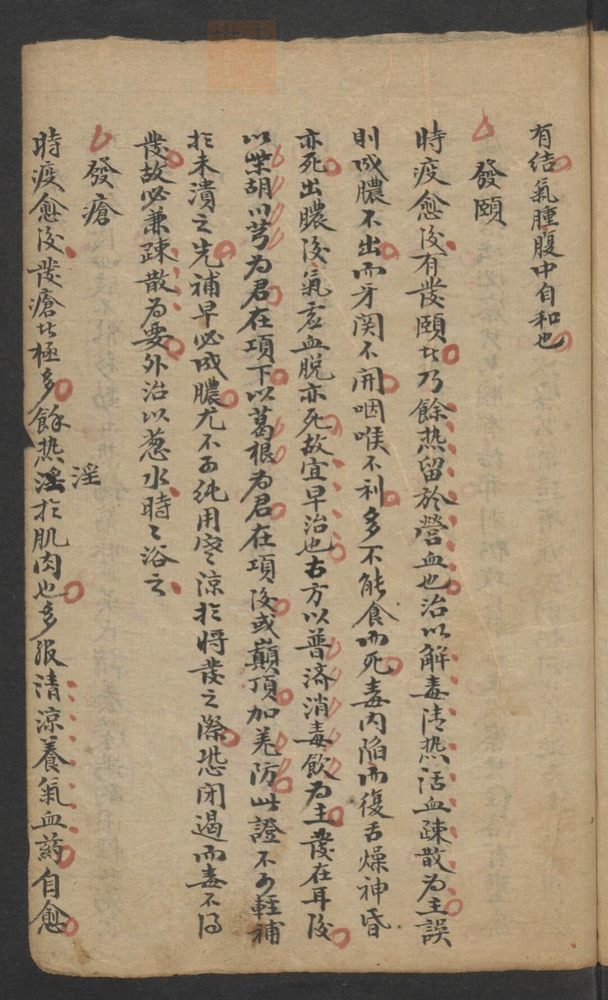 有结氣腫腹中自和也
發頤
時疫愈後有發頤者乃餘热留於營血也治以解毒清热活血疎散为主誤
則成膿不出而牙関不開咽喉不利多不能食而死毒内陷而復舌燥神昏
亦死出膿後氣虛血脱亦死故宜早治也古方以普济消毒飲为主發在耳後
以柴胡川芎为君在項下以葛根为君在項後或巔頂加羌防此證不可輕補
扵未潰之先補早必成膿尤不可纯用寒涼扵将發之際恐闭遏而毒不得
發故必兼疎散为要外治以葱水時々浴之
發瘡
時疫愈後發瘡者極多餘热淫扵肌肉也多服清凉養氣血药自愈
淫